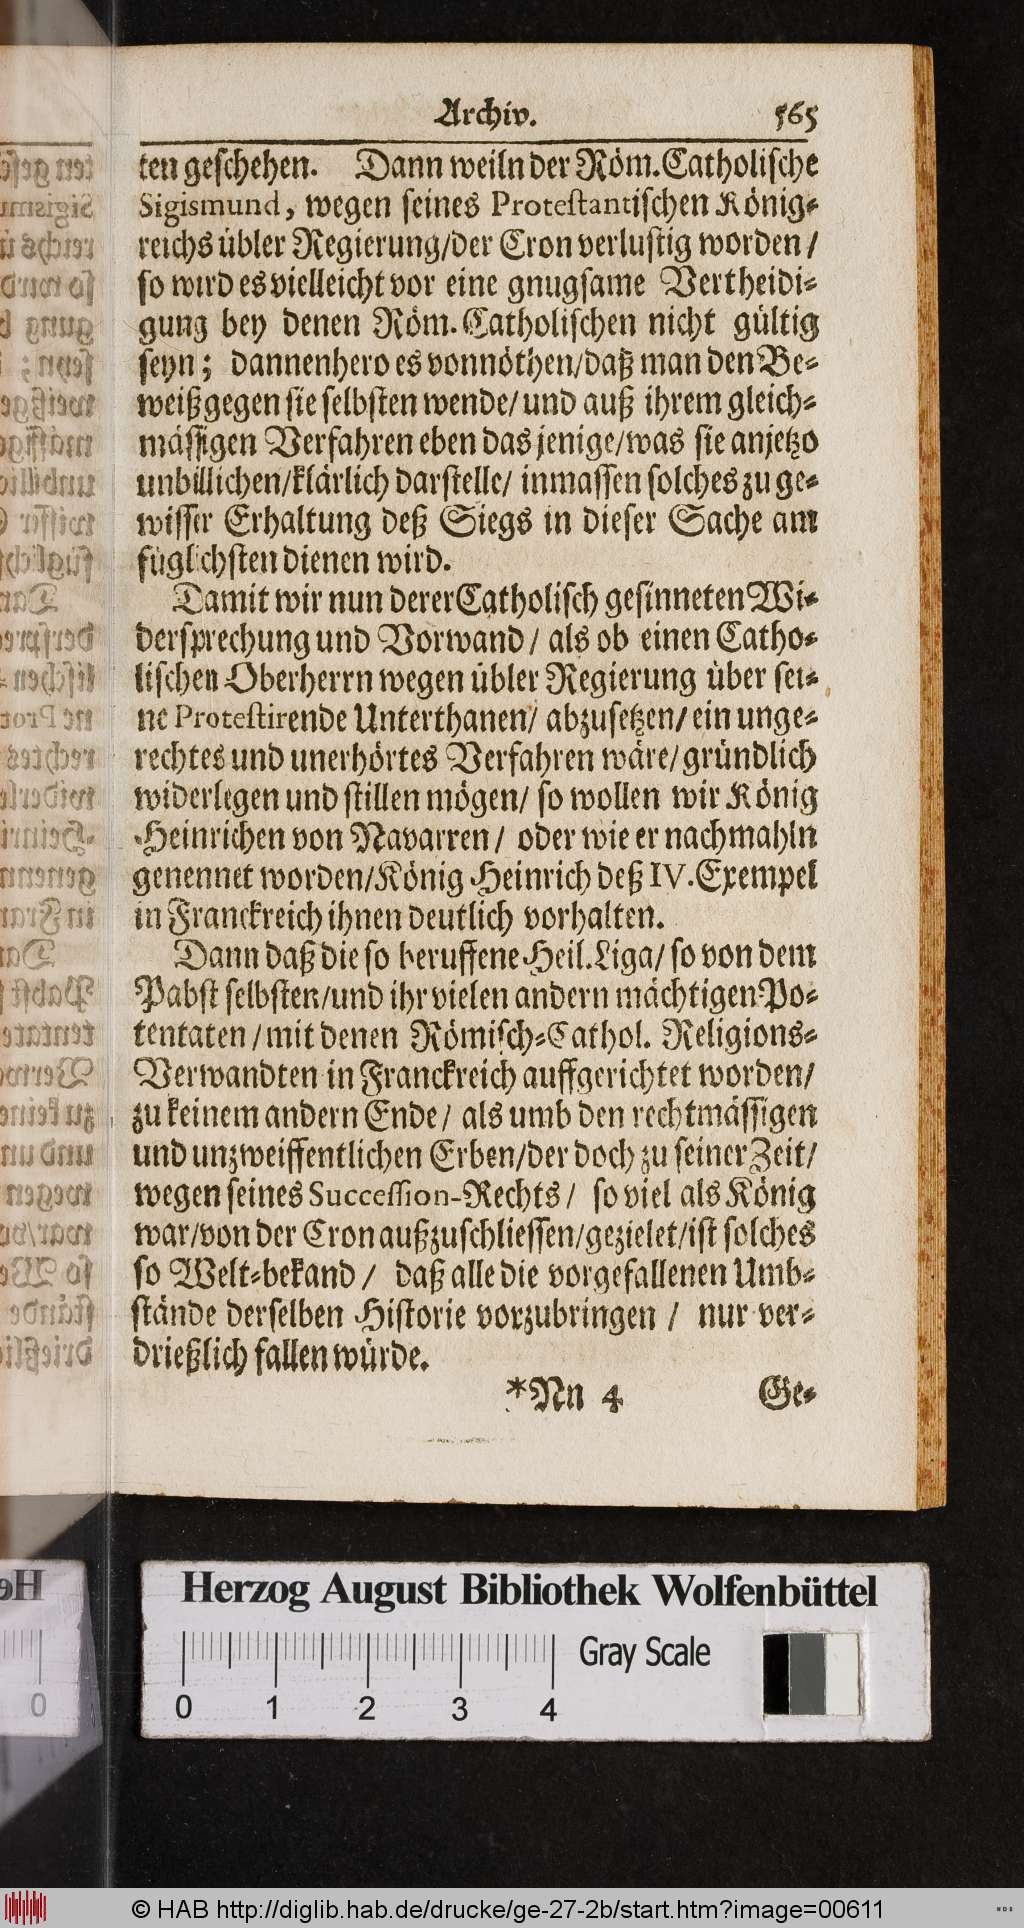 Archiv. 565
ten geschehen. Dann weiln der Röm. Catholische
Sigismund, wegen seines Protestantischen König-
reichs übler Regierung/der Cron verlustig worden/
so wird es vielleicht vor eine gnugsame Vertheidi-
gung bey denen Röm. Catholischen nicht gültig
seyn; dannenhero es vonnöthen/daß man den Be-
weiß gegen sie selbsten wende/ und auß ihrem gleich-
mässigen Verfahren eben das jenige/was sie anjetzo
unbillichen/klärlich darstelle/ inmassen solches zu ge-
wisser Erhaltung deß Siegs in dieser Sache am
füglichsten dienen wird.
Damit wir nun derer Catholisch gesinneten Wi-
dersprechung und Vorwand/ als ob einen Catho-
lischen Oberherrn wegen übler Regierung über sei-
ne Protestirende Unterthanen/ abzusetzen/ ein unge-
rechtes und unerhörtes Verfahren wäre/ gründlich
widerlegen und stillen mögen/ so wollen wir König
Heinrichen von Navarren/ oder wie er nachmahln
genennet worden/König Heinrich deß IV. Exempel
in Franckreich ihnen deutlich vorhalten.
Dann daß die so beruffene Heil. Liga/ so von dem
Pabst selbsten/und ihr vielen andern mächtigen Po-
tentaten/mit denen Römisch-Cathol. Religions-
Verwandten in Franckreich auffgerichtet worden/
zu keinem andern Ende/ als umb den rechtmässigen
und unzweiffentlichen Erben/der doch zu seiner Zeit/
wegen seines Succession-Rechts/ so viel als König
war/von der Cron außzuschliessen/gezielet/ist solches
so Welt-bekand/ daß alle die vorgefallenen Umb-
stände derselben Historie vorzubringen/ nur ver-
drießlich fallen würde.
*Nn 4 Ge-
Herzog August Bibliothek Wolfenbüttel
0 1 2 3 4 Gray Scale
© HAB http://diglib.hab.de/drucke/ge-27-2b/start.htm?image=00611